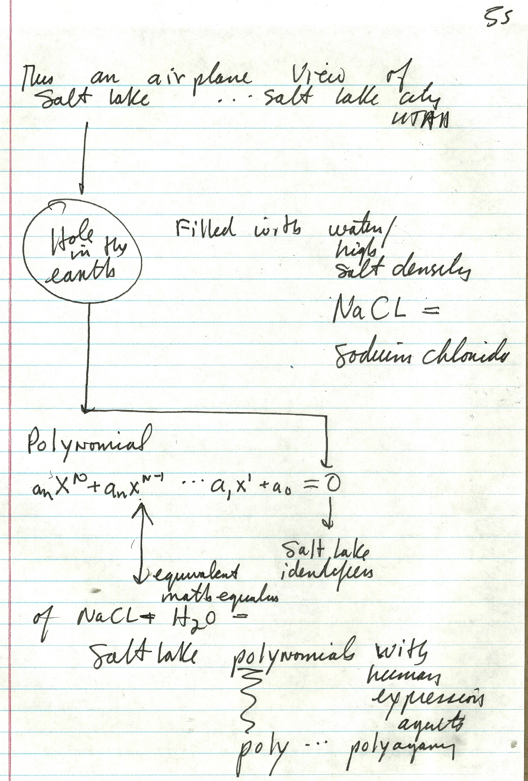 55
Thus an airplane view of
Salt lake ... Salt lake city
UTAH
Hole
in the
earth
Filled with water/
high
salt density
NaCL =
Sodium chloride
Polynomial
anX^N + anx^N-1 ... a1x^1 + a0 = 0
Salt lake
identifiers
equivalent
math
of NaCL + H2O =
Salt lake polynomials with
human
expression
agents
poly ... polygamy